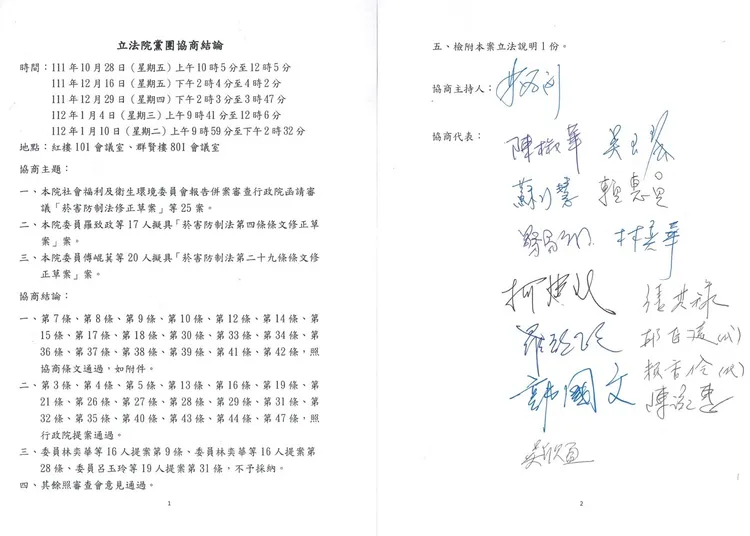 立法院黨團協商結論
時間：111 年 10 月 28 日（星期五）上午 10 時 5 分至 12 時 5 分
111 年 12 月 16 日（星期五）下午 2 時 4 分至 4 時 2 分
111 年 12 月 29 日（星期四）下午 2 時 3 分至 3 時 47 分
112 年 1 月 4 日（星期三）上午 9 時 41 分至 12 時 6 分
112 年 1 月 10 日（星期二）上午 9 時 59 分至下午 2 時 32 分
地點：紅樓 101 會議室、群賢樓 801 會議室
協商主題：
一、本院社會福利及衛生環境委員會報告併案審查行政院函請審
議「菸害防制法修正草案」等 25 案。
二、本院委員羅致政等 17 人擬具「菸害防制法第四條條文修正草
案」案。
三、本院委員傅崐萁等 20 人擬具「菸害防制法第二十九條條文修
正草案」案。
協商結論：
一、第 7 條、第 8 條、第 9 條、第 10 條、第 12 條、第 14 條、第
15 條、第 17 條、第 18 條、第 30 條、第 33 條、第 34 條、第
36 條、第 37 條、第 38 條、第 39 條、第 41 條、第 42 條，照
協商條文通過，如附件。
二、第 3 條、第 4 條、第 5 條、第 13 條、第 16 條、第 19 條、第
21 條、第 26 條、第 27 條、第 28 條、第 29 條、第 31 條、第
32 條、第 35 條、第 40 條、第 43 條、第 44 條、第 47 條，照
行政院提案通過。
三、委員林奕華等 16 人提案第 9 條、委員林奕華等 16 人提案第
28 條、委員呂玉玲等 19 人提案第 31 條，不予採納。
四、其餘照審查會意見通過。
1
五、檢附本案立法說明 1 份。
協商主持人：
協商代表：
陳椒華 吳玉琴
蘇巧慧 賴惠員
林奕華
柯建銘
羅致政
韓國文
吳欣盈
2